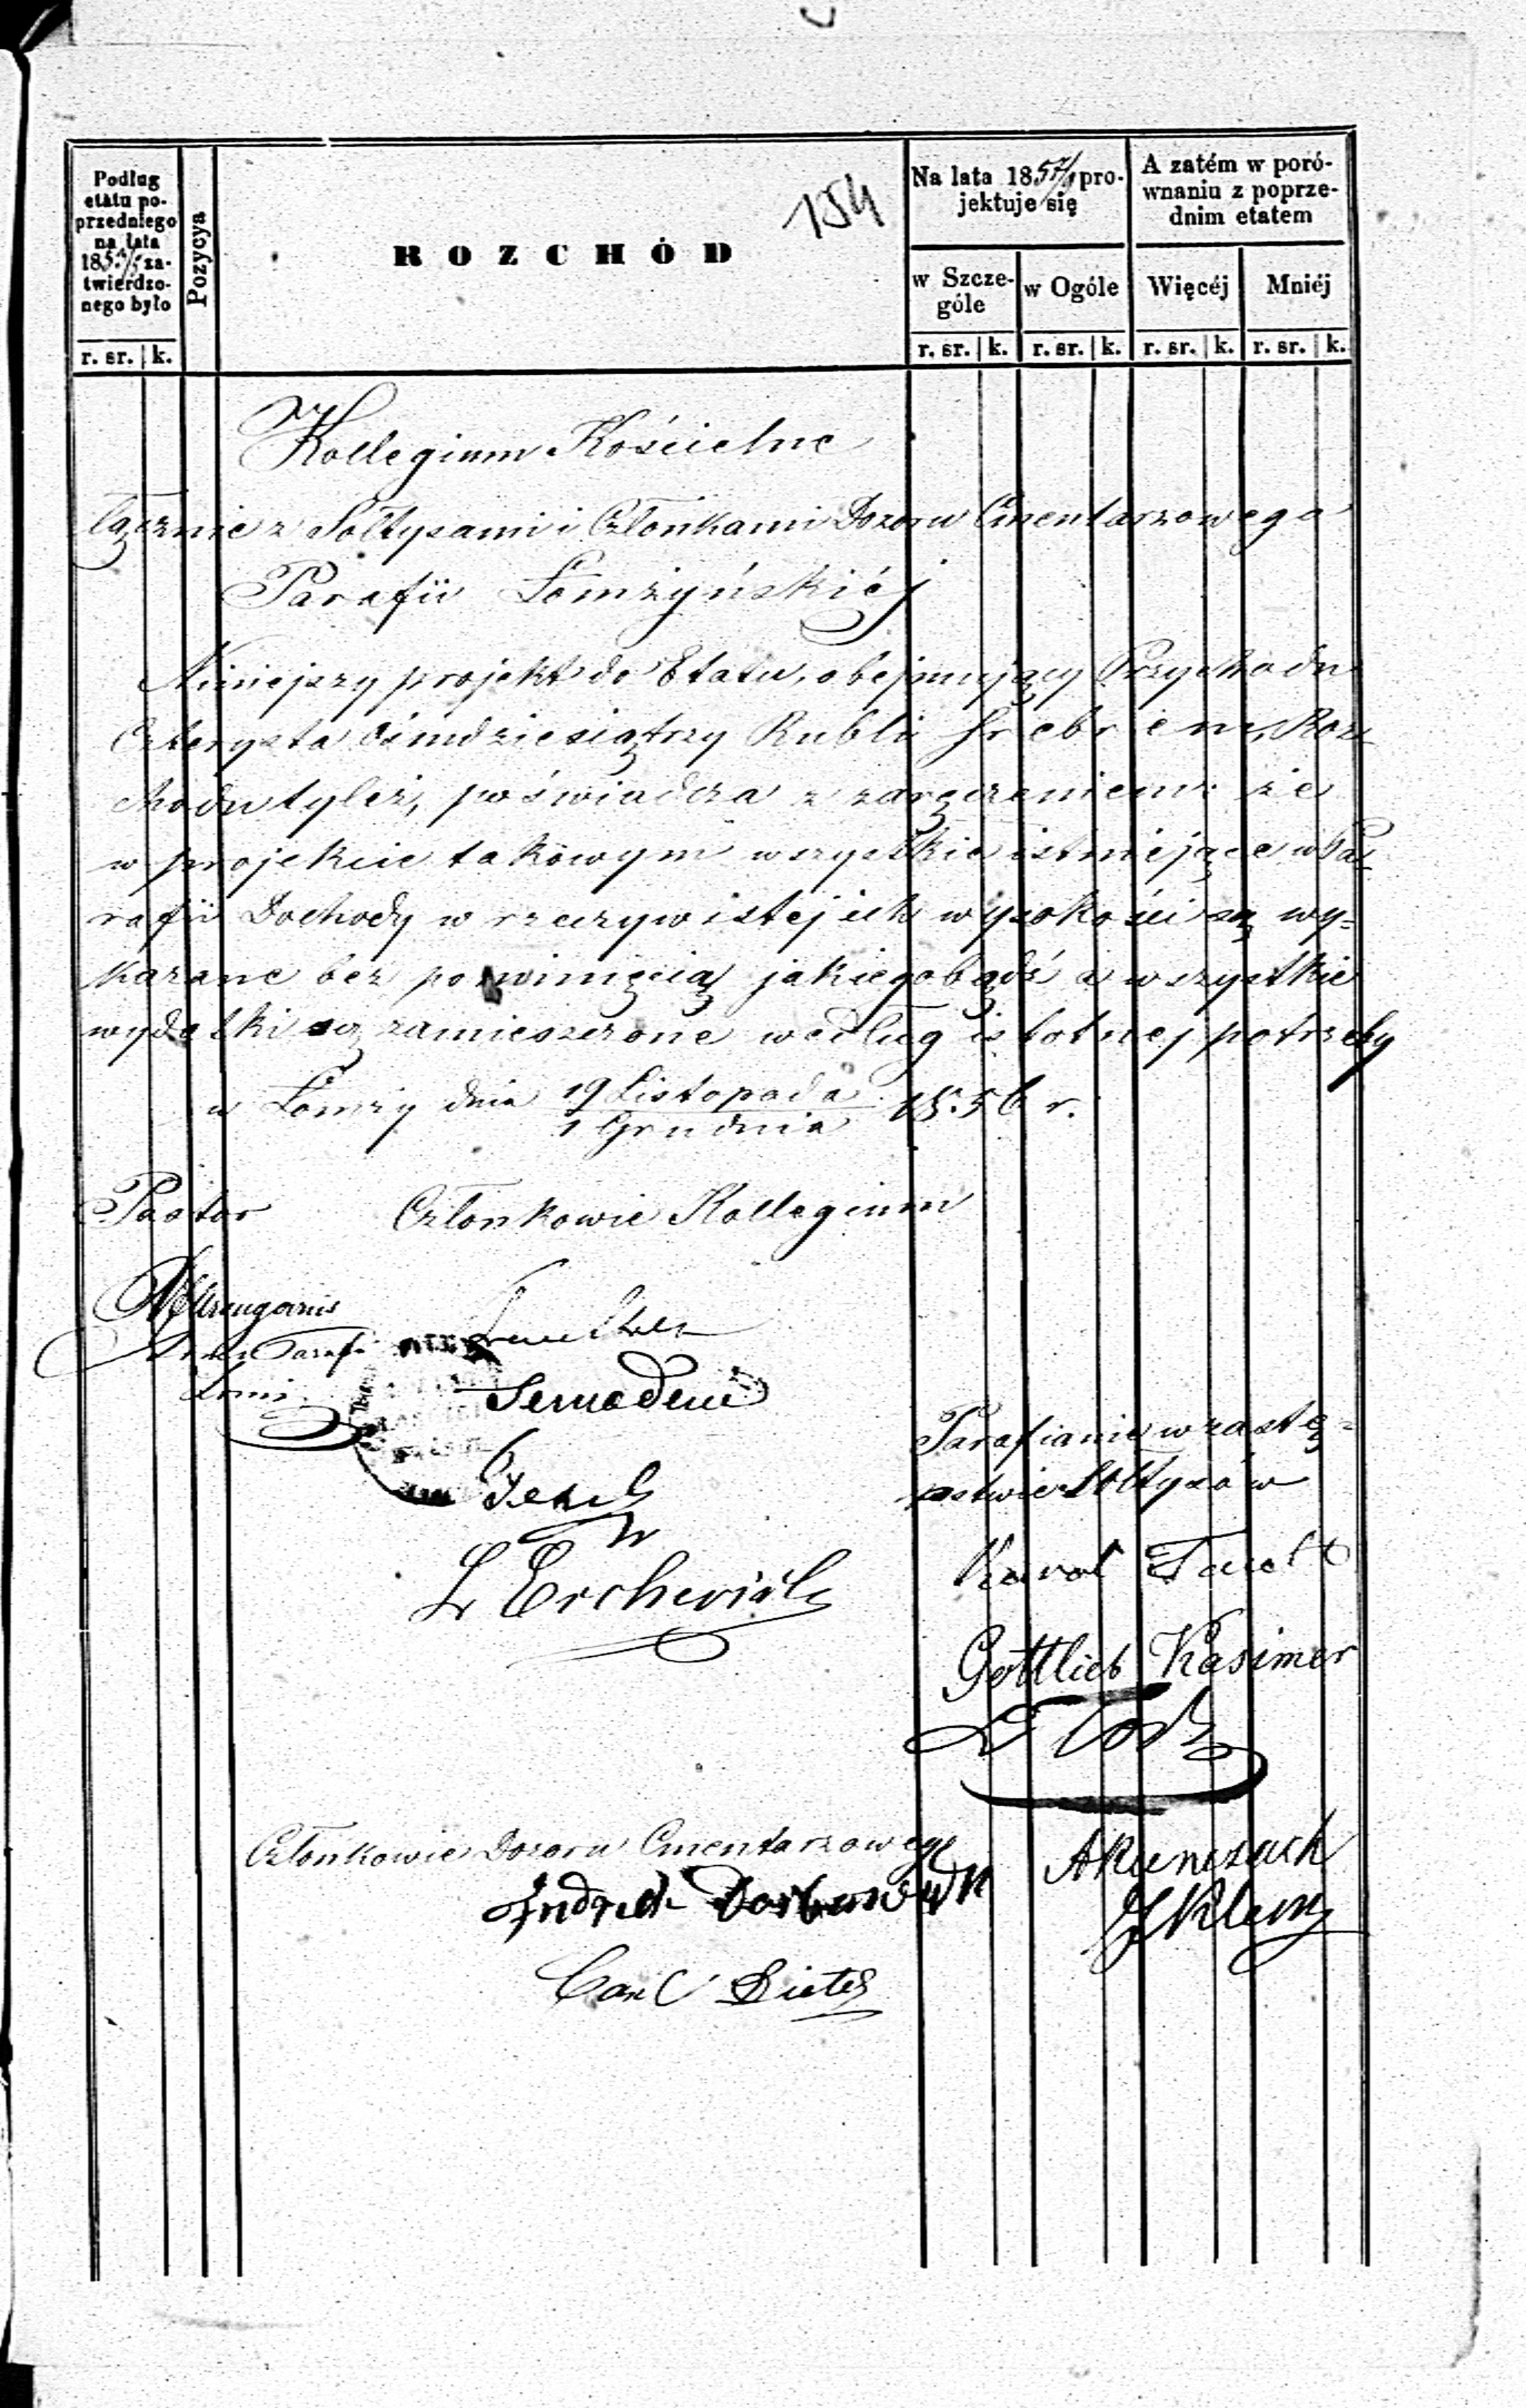 154
Podług
etatu po-
przedniego
na lata
185 za-
twierdzo-
nego było
Pozycya
ROZCHÓD
Na lata 1857/ pro-
jektuje się
A zatém w poró-
wnaniu z poprze-
dnim etatem
w Szcze-
góle
w Ogóle
Więcéj
Mniéj
r. sr. k.
r. sr. k.
r. sr. k.
r. sr. k.
r. sr. k.
Kollegium Kościelne
łącznie z Sołtysami i Członkami Dozoru Cmentarzowego
Parafii Łomżyńskiéj
Niniejszy projekt do Etatu, obejmujący Przychodu
Czterysta Ośmdziesiąt trzy Rubli Srebrem, Roz-
chodu tyleż, poświadcza z zaręczeniem że
w projekcie takowym wszystkie istniejące w Pa-
rafii Dochody w rzeczywistej ich wysokości są wy-
kazane bez pominięcia jakiegobądź a wszystkie
wydatki są zamieszczone według istotnej potrzeby
w Łomży dnia 19 Listopada / 1 Grudnia 1856 r.
Pastor
Członkowie Kollegium
Semadeni
Parafianie w zastę-
pstwie Sołtysów
Karol
Gottlieb Kasimer
Członkowie Dozoru Cmentarzowego
Carl